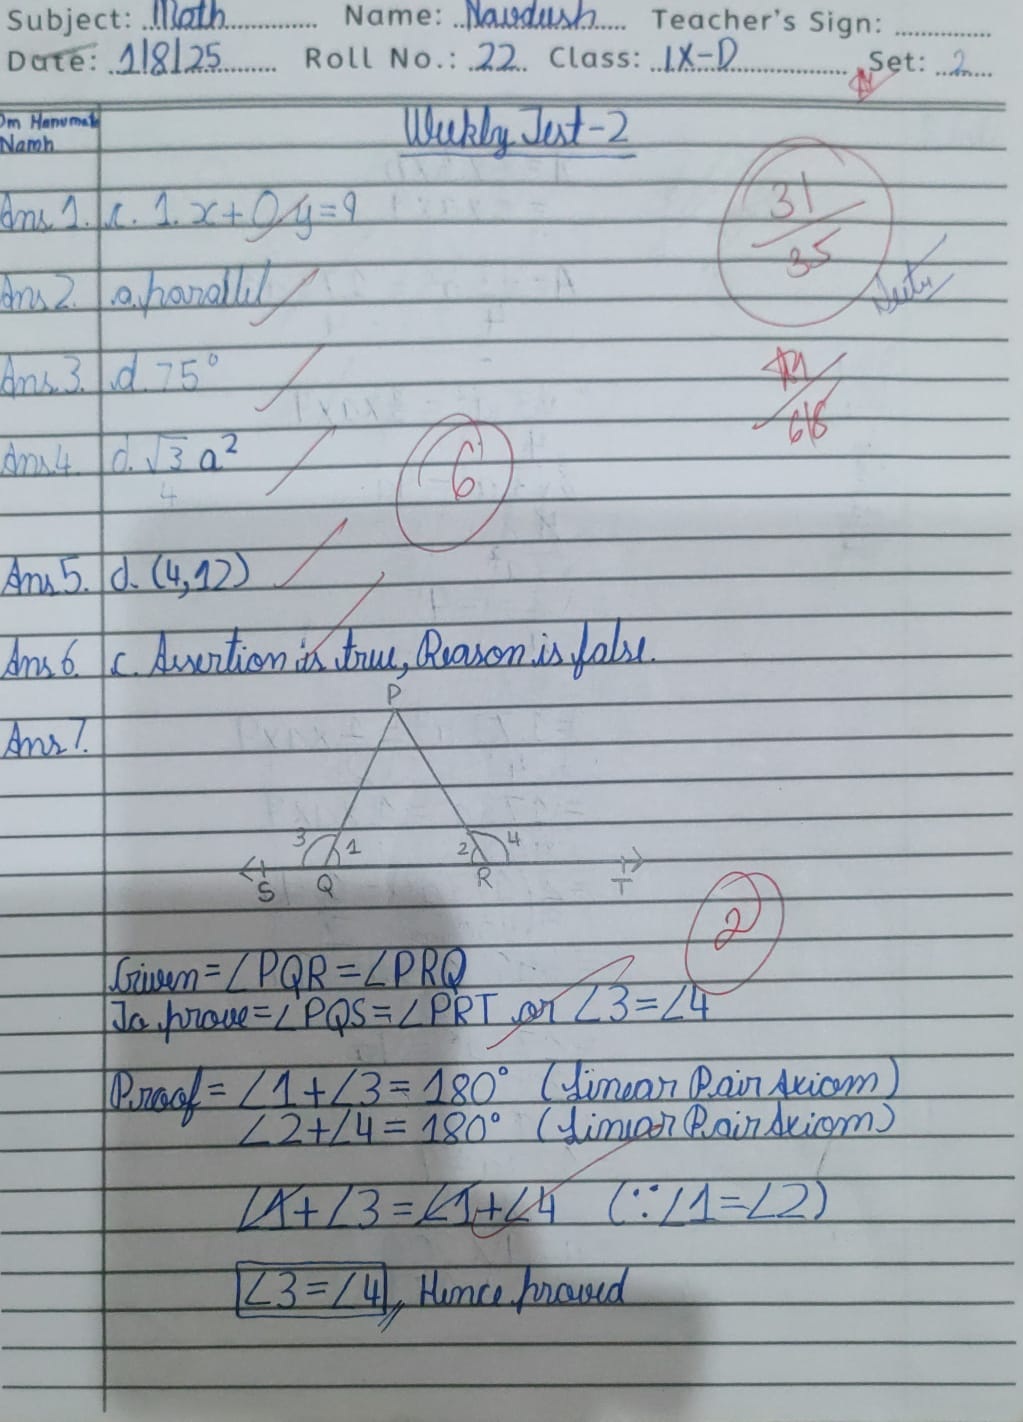 Subject: Math Name: Navdush Teacher's Sign:
Date: 1/8/25 Roll No.: 22 Class: IX-D Set: 2
Om Hanumate
Namh
Weekly Test-2
31/35
Ans 1. c. 1.x+0.y=9
Ans 2. a. parallel
Ans 3. d. 75°
6/8
Ans 4. d. √3 a²
4
6
Ans 5. d. (4,12)
Ans 6. c. Assertion is true, Reason is false.
Ans 7.
P
3 1 2 4
S Q R T
2
Given = ∠PQR = ∠PRQ
To prove = ∠PQS = ∠PRT or ∠3 = ∠4
Proof = ∠1+∠3 = 180° (Linear Pair Axiom)
∠2+∠4 = 180° (Linear Pair Axiom)
∠1+∠3 = ∠1+∠4 (∵∠1=∠2)
∠3=∠4, Hence proved